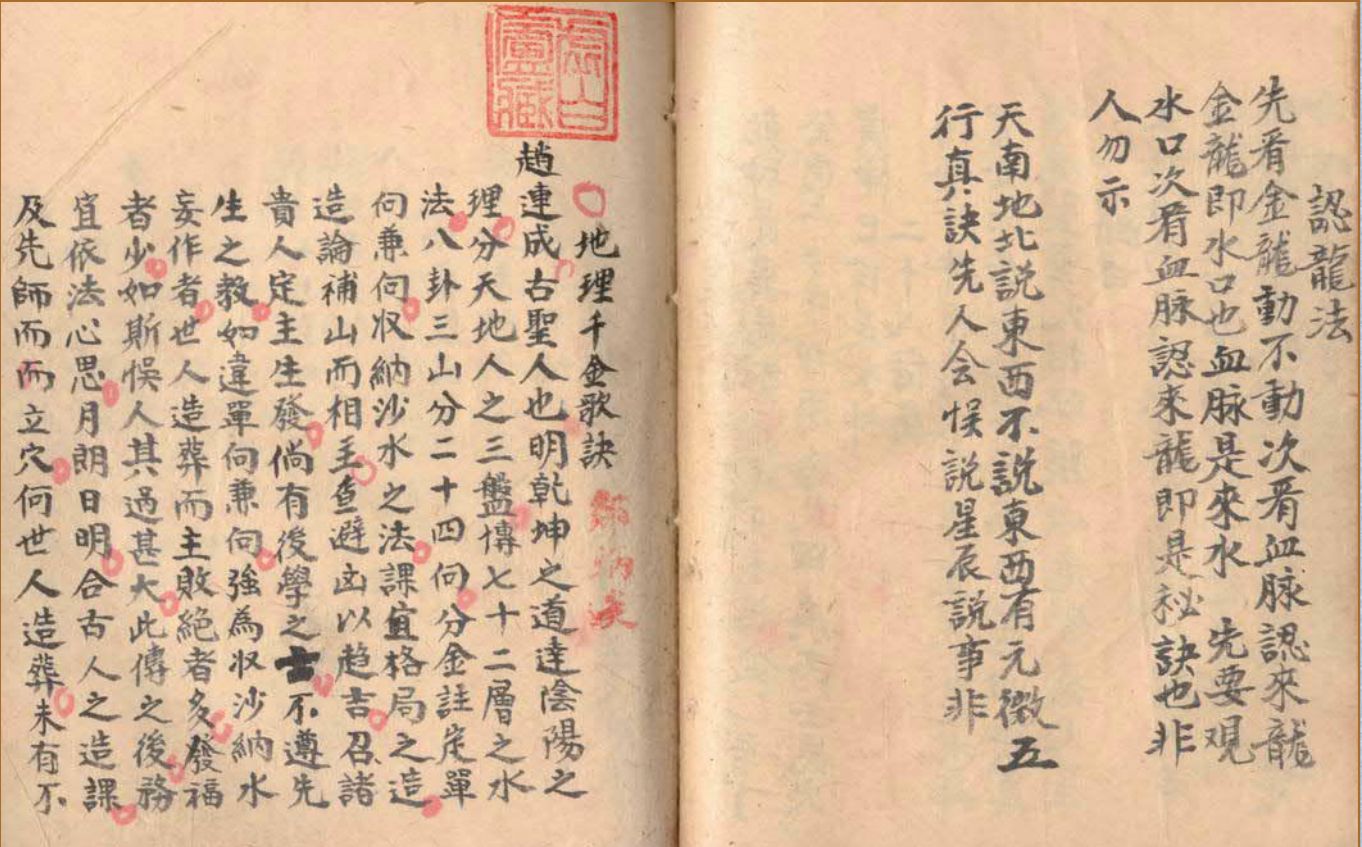 認龍法
先看金龍動不動次看血脉認來龍
金龍即水口也血脉是來水　先要观
水口次看血脉認來龍即是秘訣也非
人勿示
天南地北説東西不説東西有元微五
行真訣先人会悮説星辰説事非
地理千金歌訣
趙連成古聖人也明乾坤之道達陰陽之
理分天地人之三盤傳七十二層之水
法八卦三山分二十四向分金註定單
向兼向収納沙水之法課宜格局之造
造論補山而相主魚避凶以趋吉召諸
貴人定主生發倘有後學之士不遵先
生之教如違單向兼向強為収沙納水
妄作者世人造葬而主敗絕者多發福
者少如斯悮人其過甚大此傳之後務
宜依法心思月朗日明合古人之造課
及先師而而立穴何世人造葬未有不